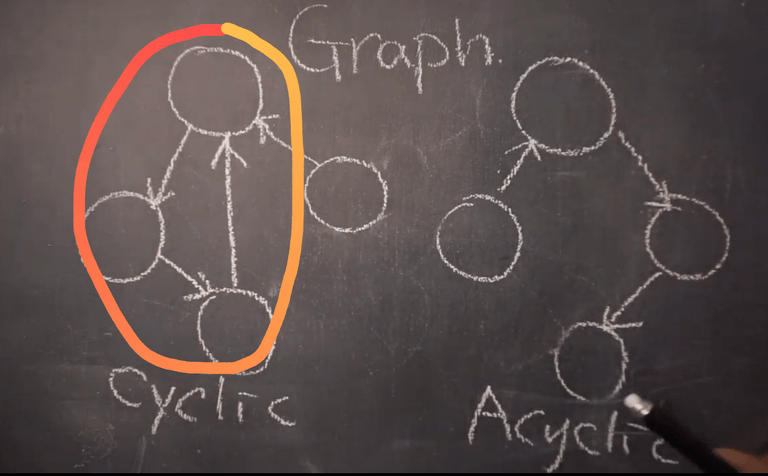 Graph.
Cyclic
Acyclic